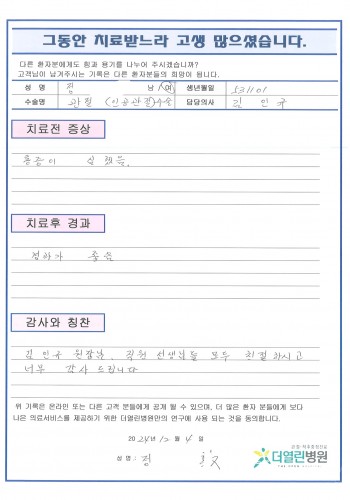 그동안 치료받느라 고생 많으셨습니다.
다른 환자분에게도 힘과 용기를 나누어 주시겠습니까?
고객님이 남겨주시는 기록은 다른 환자분들의 희망이 됩니다.
성 명 정 남 / 여 생년월일 531101
수술명 관절 (인공관절)수술 담당의사 김민규
치료전 증상
통증이 심했음.
치료후 경과
경과가 좋음
감사와 칭찬
김민규 원장님, 직원 선생님들 모두 친절하시고
너무 감사드립니다
위 기록은 온라인 또는 다른 고객 분들에게 공개 될 수 있으며, 더 많은 환자 분들에게 보다
나은 의료서비스를 제공하기 위한 더열린병원만의 연구에 사용 되는 것을 동의합니다.
2024년 12월 4일
성 명 : 정
더열린병원